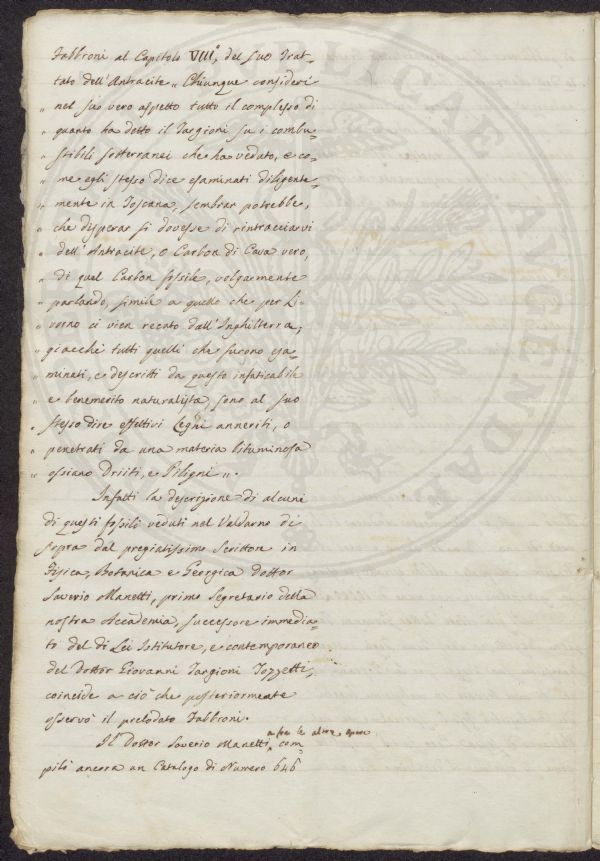 Fabbroni al Capitolo VIII°. del suo Trat=
tato dell'Antracite „ Chiunque consideri
„ nel suo vero aspetto tutto il complesso di
„ quanto ha detto il Targioni su i combu=
„ stibili sotterranei che ha veduto, e co=
„ me egli stesso dice esaminati diligente=
„ mente in Toscana, sembrar potrebbe,
„ che disperar si dovesse di rintracciarvi
„ dell'Antracite, o Carbon di Cava vero,
„ di quel Carbon fossile, volgarmente
„ parlando, simile a quello che per Li=
„ vorno ci vien recato dall'Inghilterra,
„ giacchè tutti quelli che furono esa=
„ minati, e descritti da questo infaticabile
„ e benemerito naturalista, sono al suo
„ stesso dire effettivi Legni anneriti, o
„ penetrati da una materia bituminosa
„ ossiano Driiti, e Piligni „.
Infatti la descrizione di alcuni
di questi fossili veduti nel Valdarno di
sopra dal pregiatissimo Scrittore in
Fisica, Botanica e Georgica Dottor
Saverio Manetti, primo Segretario della
nostra Accademia, successore immedia=
to del di Lei Istitutore, e contemporaneo
del Dottor Giovanni Targioni Tozzetti,
coincide a ciò che posteriormente
osservò il prelodato Fabbroni.
Il Dottor Saverio Manetti fra le altre opere com=
pilò ancora un Catalogo di Numero 646
LICAE AVGENDAE